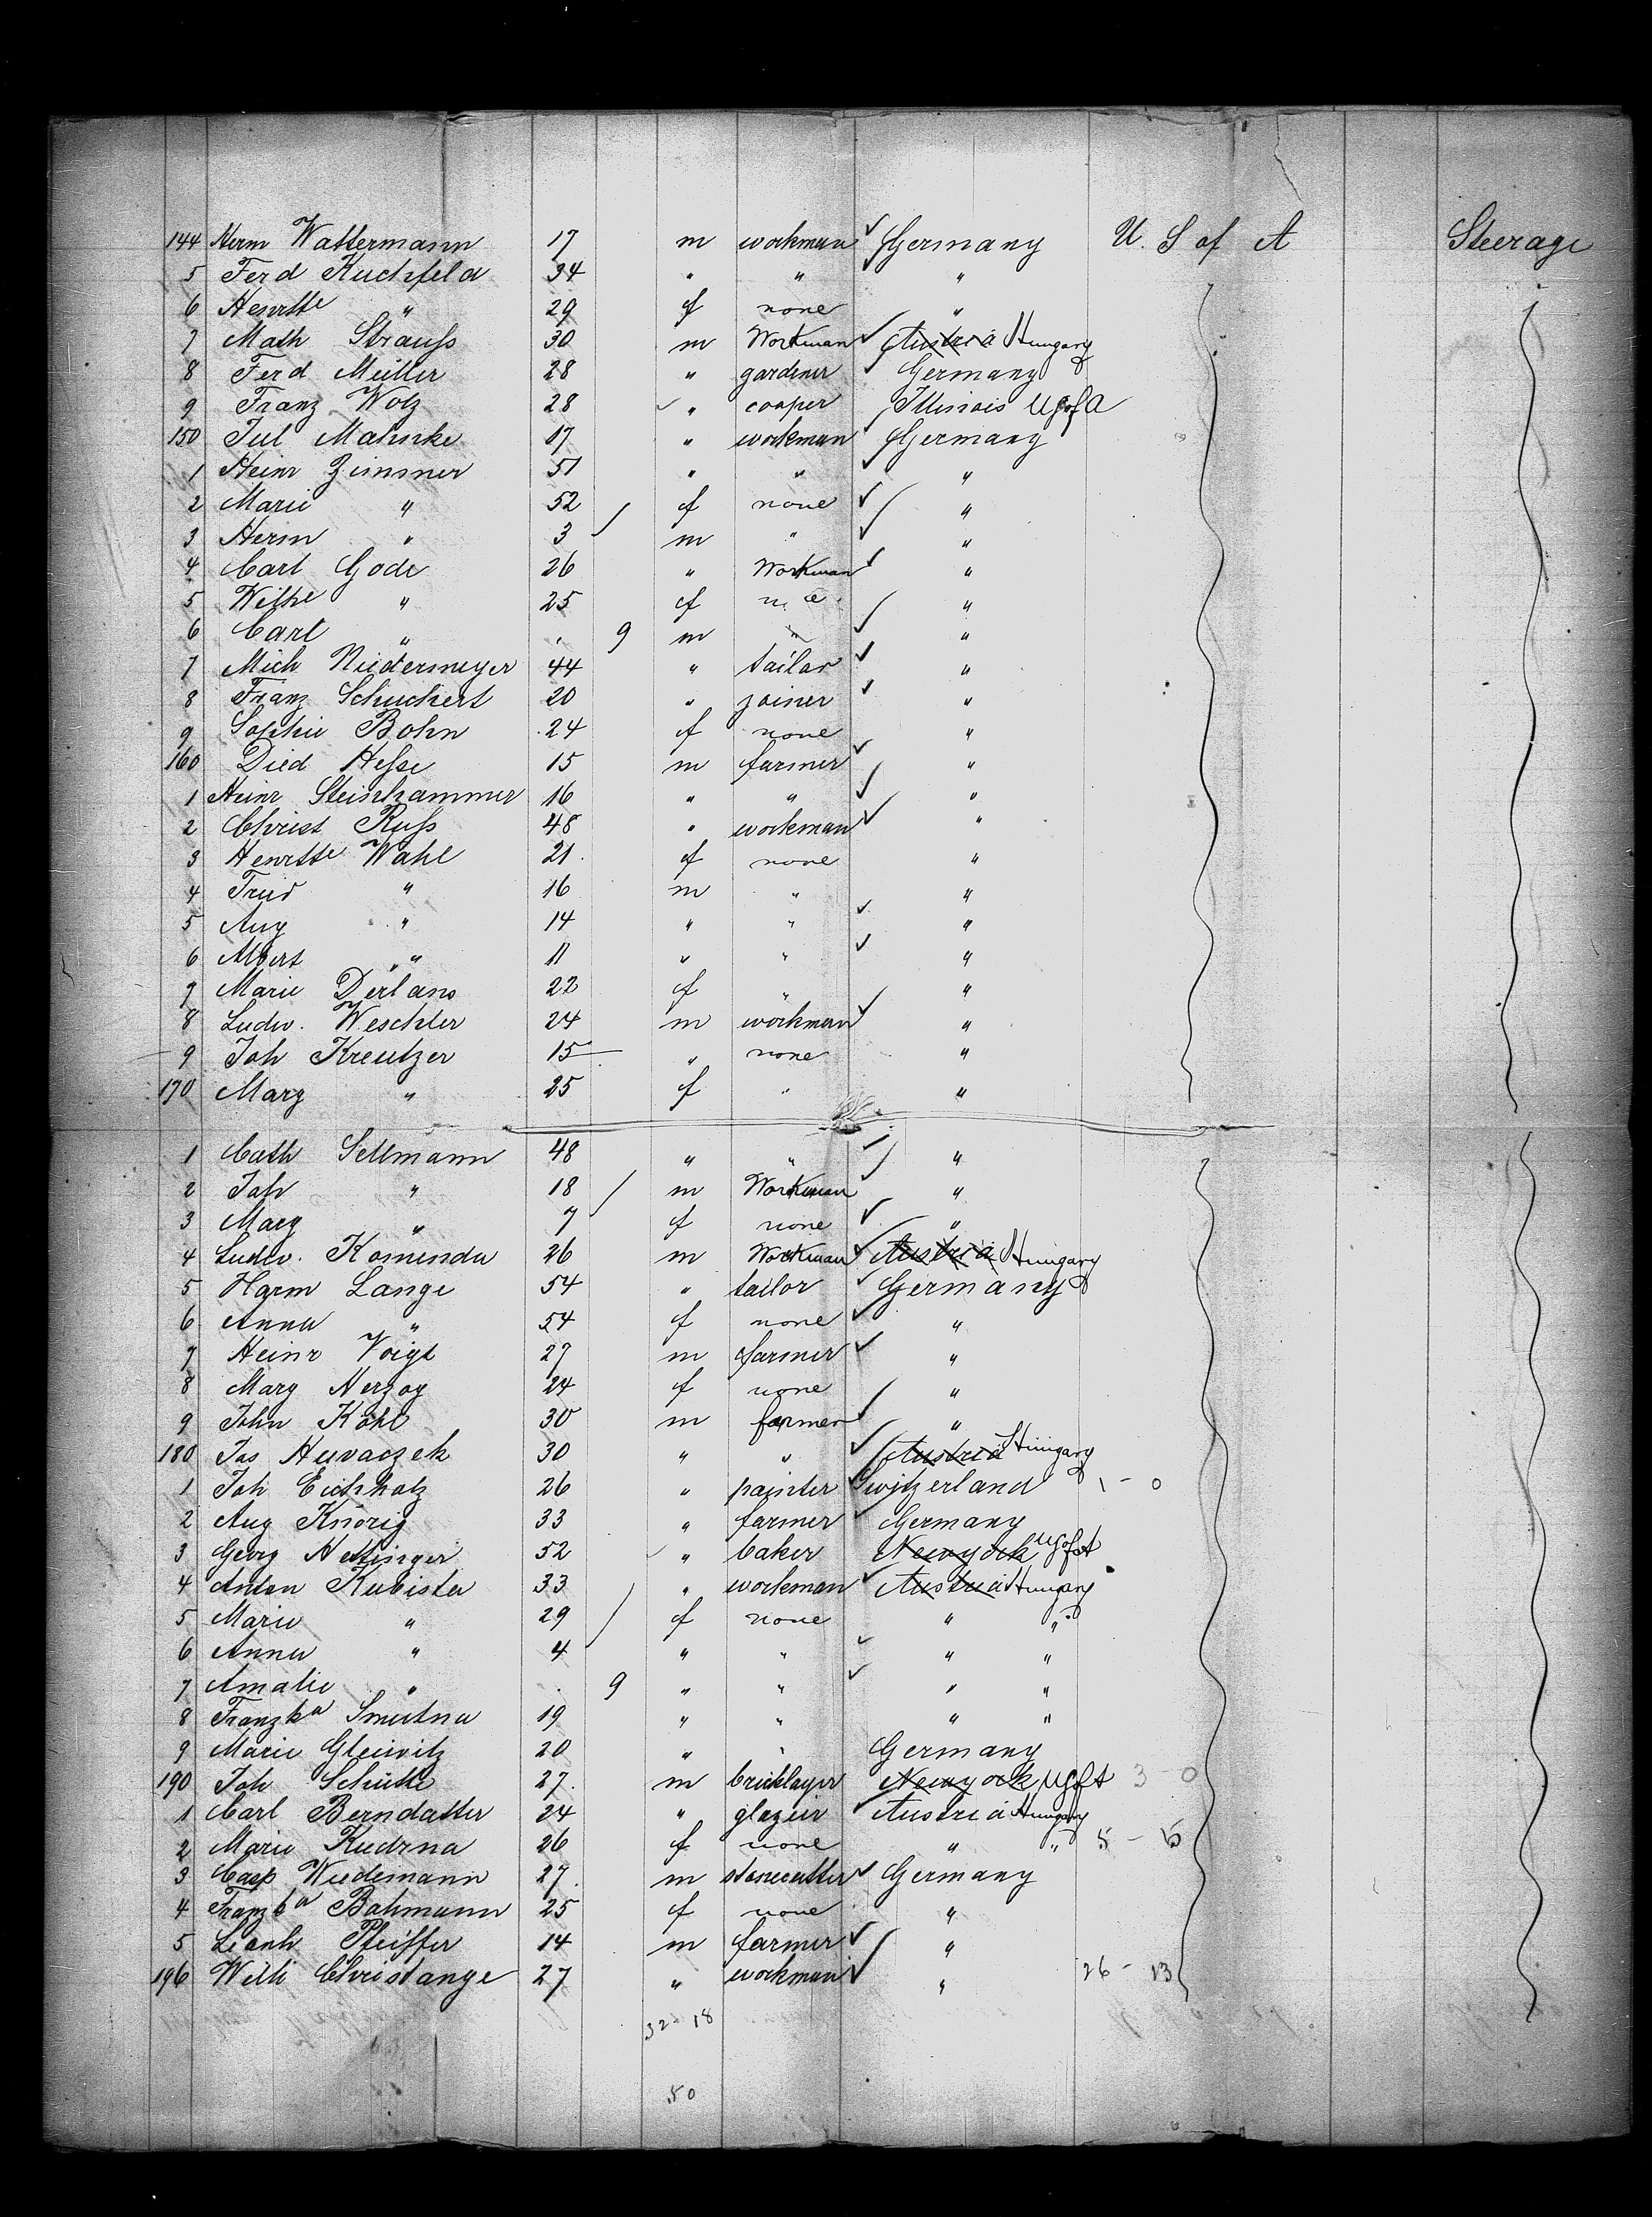 144 Herm Wattermann 17 m workman Germany U. S of A Steerage
5 Ferd Kuchfeld 34 " " "
6 Henrtte " 29 f none "
7 Math Strauss 30 m Workman Austria Hungary
8 Ferd Müller 28 " gardener Germany
9 Franz Wolz 28 " cooper Illinois U S of A
150 Jul Mahnke 17 " workman Germany
1 Heinr Zimmer 51 " " "
2 Marie " 52 f none "
3 Herm " 3 m " "
4 Carl Gode 26 " Workman "
5 Wilhe " 25 f "
6 Carl " 9 m " "
7 Mich Niedermeyer 44 " tailor "
8 Franz Schuchert 20 " joiner "
9 Sophie Bohn 24 f none "
160 Died Hesse 15 m farmer "
1 Heinr Steinhammer 16 " " "
2 Christ Russ 48 " workman "
3 Henrtte Wahl 21 f none "
4 Fried " 16 m " "
5 Aug " 14 " " "
6 Albert " 11 " " "
7 Marie Derlans 22 f " "
8 Ludw. Weschler 24 m workman "
9 Joh Kreutzer 15 " none "
170 Marg " 25 f " "
1 Cath Sellmann 48 " " "
2 Joh " 18 m Workman "
3 Marg " 7 f none "
4 Ludw. Komenda 26 m Workman Austria Hungary
5 Harm Lange 54 " tailor Germany
6 Anna " 54 f none "
7 Heinr Voigt 27 m farmer "
8 Marg Herzog 24 f none "
9 John Köhl 30 m farmer "
180 Jos Huvaczek 30 " " Austria Hungary
1 Joh Eichholz 26 " painter Switzerland 1 - 0
2 Aug Knörig 33 " farmer Germany
3 Georg Hettinger 52 " baker Newyork U S of A
4 Anton Kubista 33 " workman Austria Hungary
5 Marie " 29 f none " "
6 Anna " 4 " " " "
7 Amalie " 9 " " " "
8 Franzka Smutna 19 " " " "
9 Marie Gleiwitz 20 " " Germany
190 Joh Schütte 27 m bricklayer Newyork U S of A 3 - 0
1 Carl Berndatter 24 " glazeir Austria Hungary
2 Marie Kudrna 26 f none " " 5 - 5
3 Casp Wiedemann 27 m stonecutter Germany
4 Franzka Bahmann 25 f none "
5 Leonh Pfeiffer 14 m farmer "
196 Willi Christange 27 " workman " 26 - 13
32 - 18
50